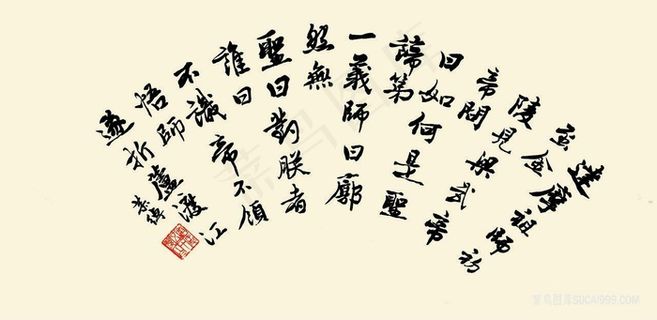 達摩祖師初
至金
陵見與武帝
帝問
曰如何是聖
諦第
一義師曰廓
然無
聖曰對朕者
誰曰
不識帝不領
悟師
遂折蘆渡江
菜鸟图库
菜鸟图库SUCAI999.COM